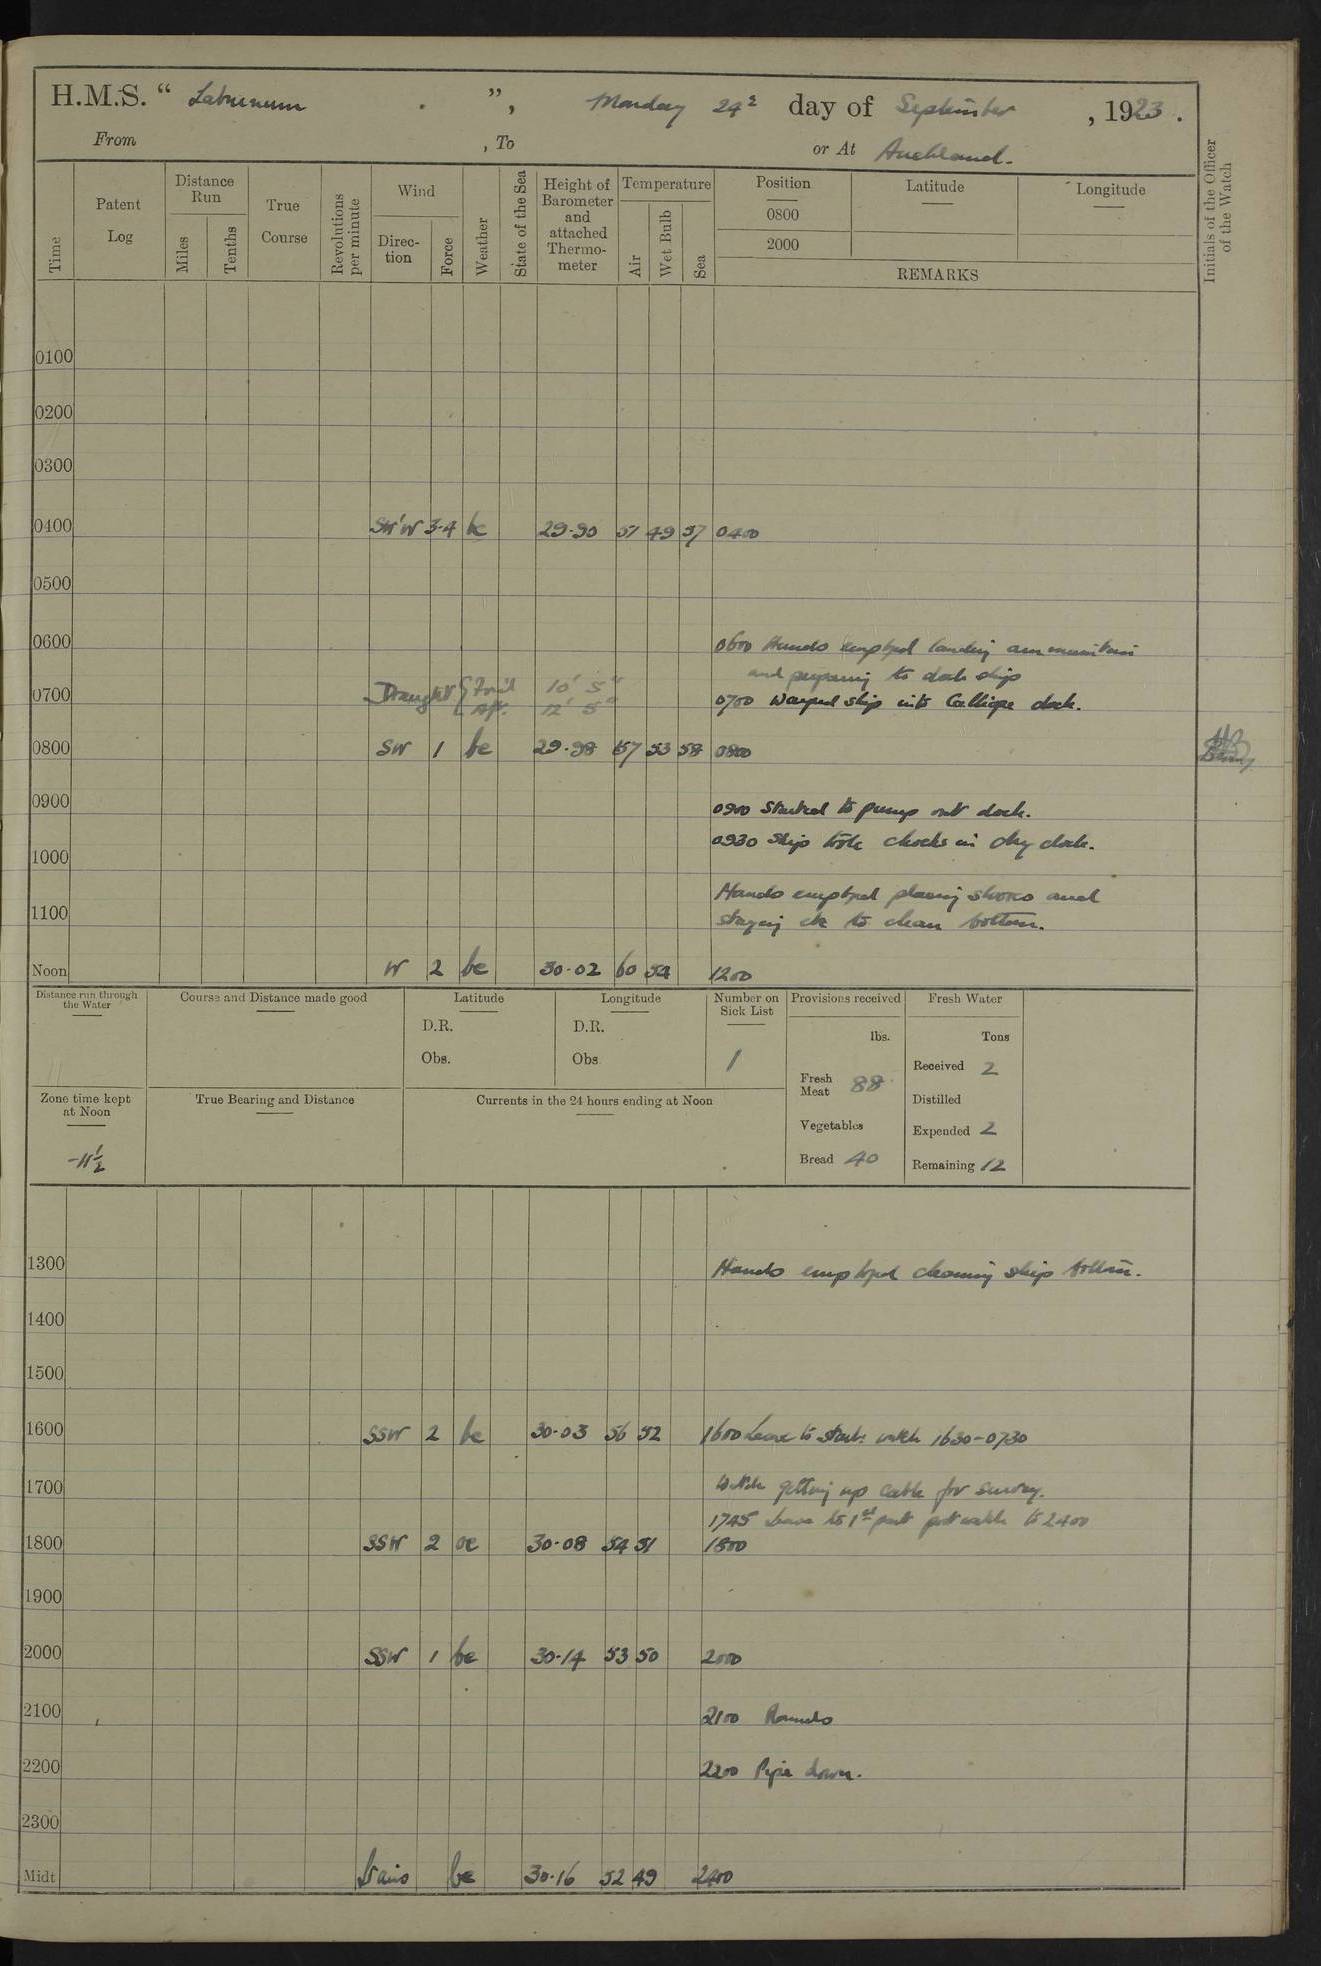 H.M.S. “ Laburnum ”, Monday 24th day of September , 1923.
From , To or At Auckland.
Time
Patent Log
Distance Run
Miles
Tenths
True Course
Revolutions per minute
Wind
Direc-tion
Force
Weather
State of the Sea
Height of Barometer and attached Thermo-meter
Temperature
Air
Wet Bulb
Sea
Position
0800
2000
Latitude
Longitude
REMARKS
Initials of the Officer of the Watch
0100
0200
0300
0400 3-4 bc 29.90 51 49 57 0400
0500
0600 0600 Hands employed landing ammunition
and preparing to dock ship
0700 Draught { For'd 10' 5" 0700 Warped ship into Calliope dock.
Aft. 12' 5"
0800 SW 1 bc 29.98 57 53 58 0800
0900 0900 Started to pump out dock.
0930 Ship took chocks in dry dock.
1000
Hands employed placing shores and
1100 staging etc to clean bottom.
Noon W 2 bc 30.02 60 54 1200
Distance run through the Water
Course and Distance made good
Latitude
D.R.
Obs.
Longitude
D.R.
Obs
Number on Sick List
1
Provisions received
lbs.
Fresh Meat 88
Vegetables
Bread 40
Fresh Water
Tons
Received 2
Distilled
Expended 2
Remaining 12
Zone time kept at Noon
-11½
True Bearing and Distance
Currents in the 24 hours ending at Noon
1300 Hands employed cleaning ship bottom.
1400
1500
1600 SSW 2 bc 30.03 56 52 1600 Leave to starb: watch 1630-0730
1700 Watch getting up cable for survey.
1745 Leave to 1st part port watch to 2400
1800 SSW 2 oc 30.08 54 51 1800
1900
2000 SSW 1 bc 30.14 53 50 2000
2100 2100 Rounds
2200 2200 Pipe down.
2300
Midt bc 30.16 52 49 2400